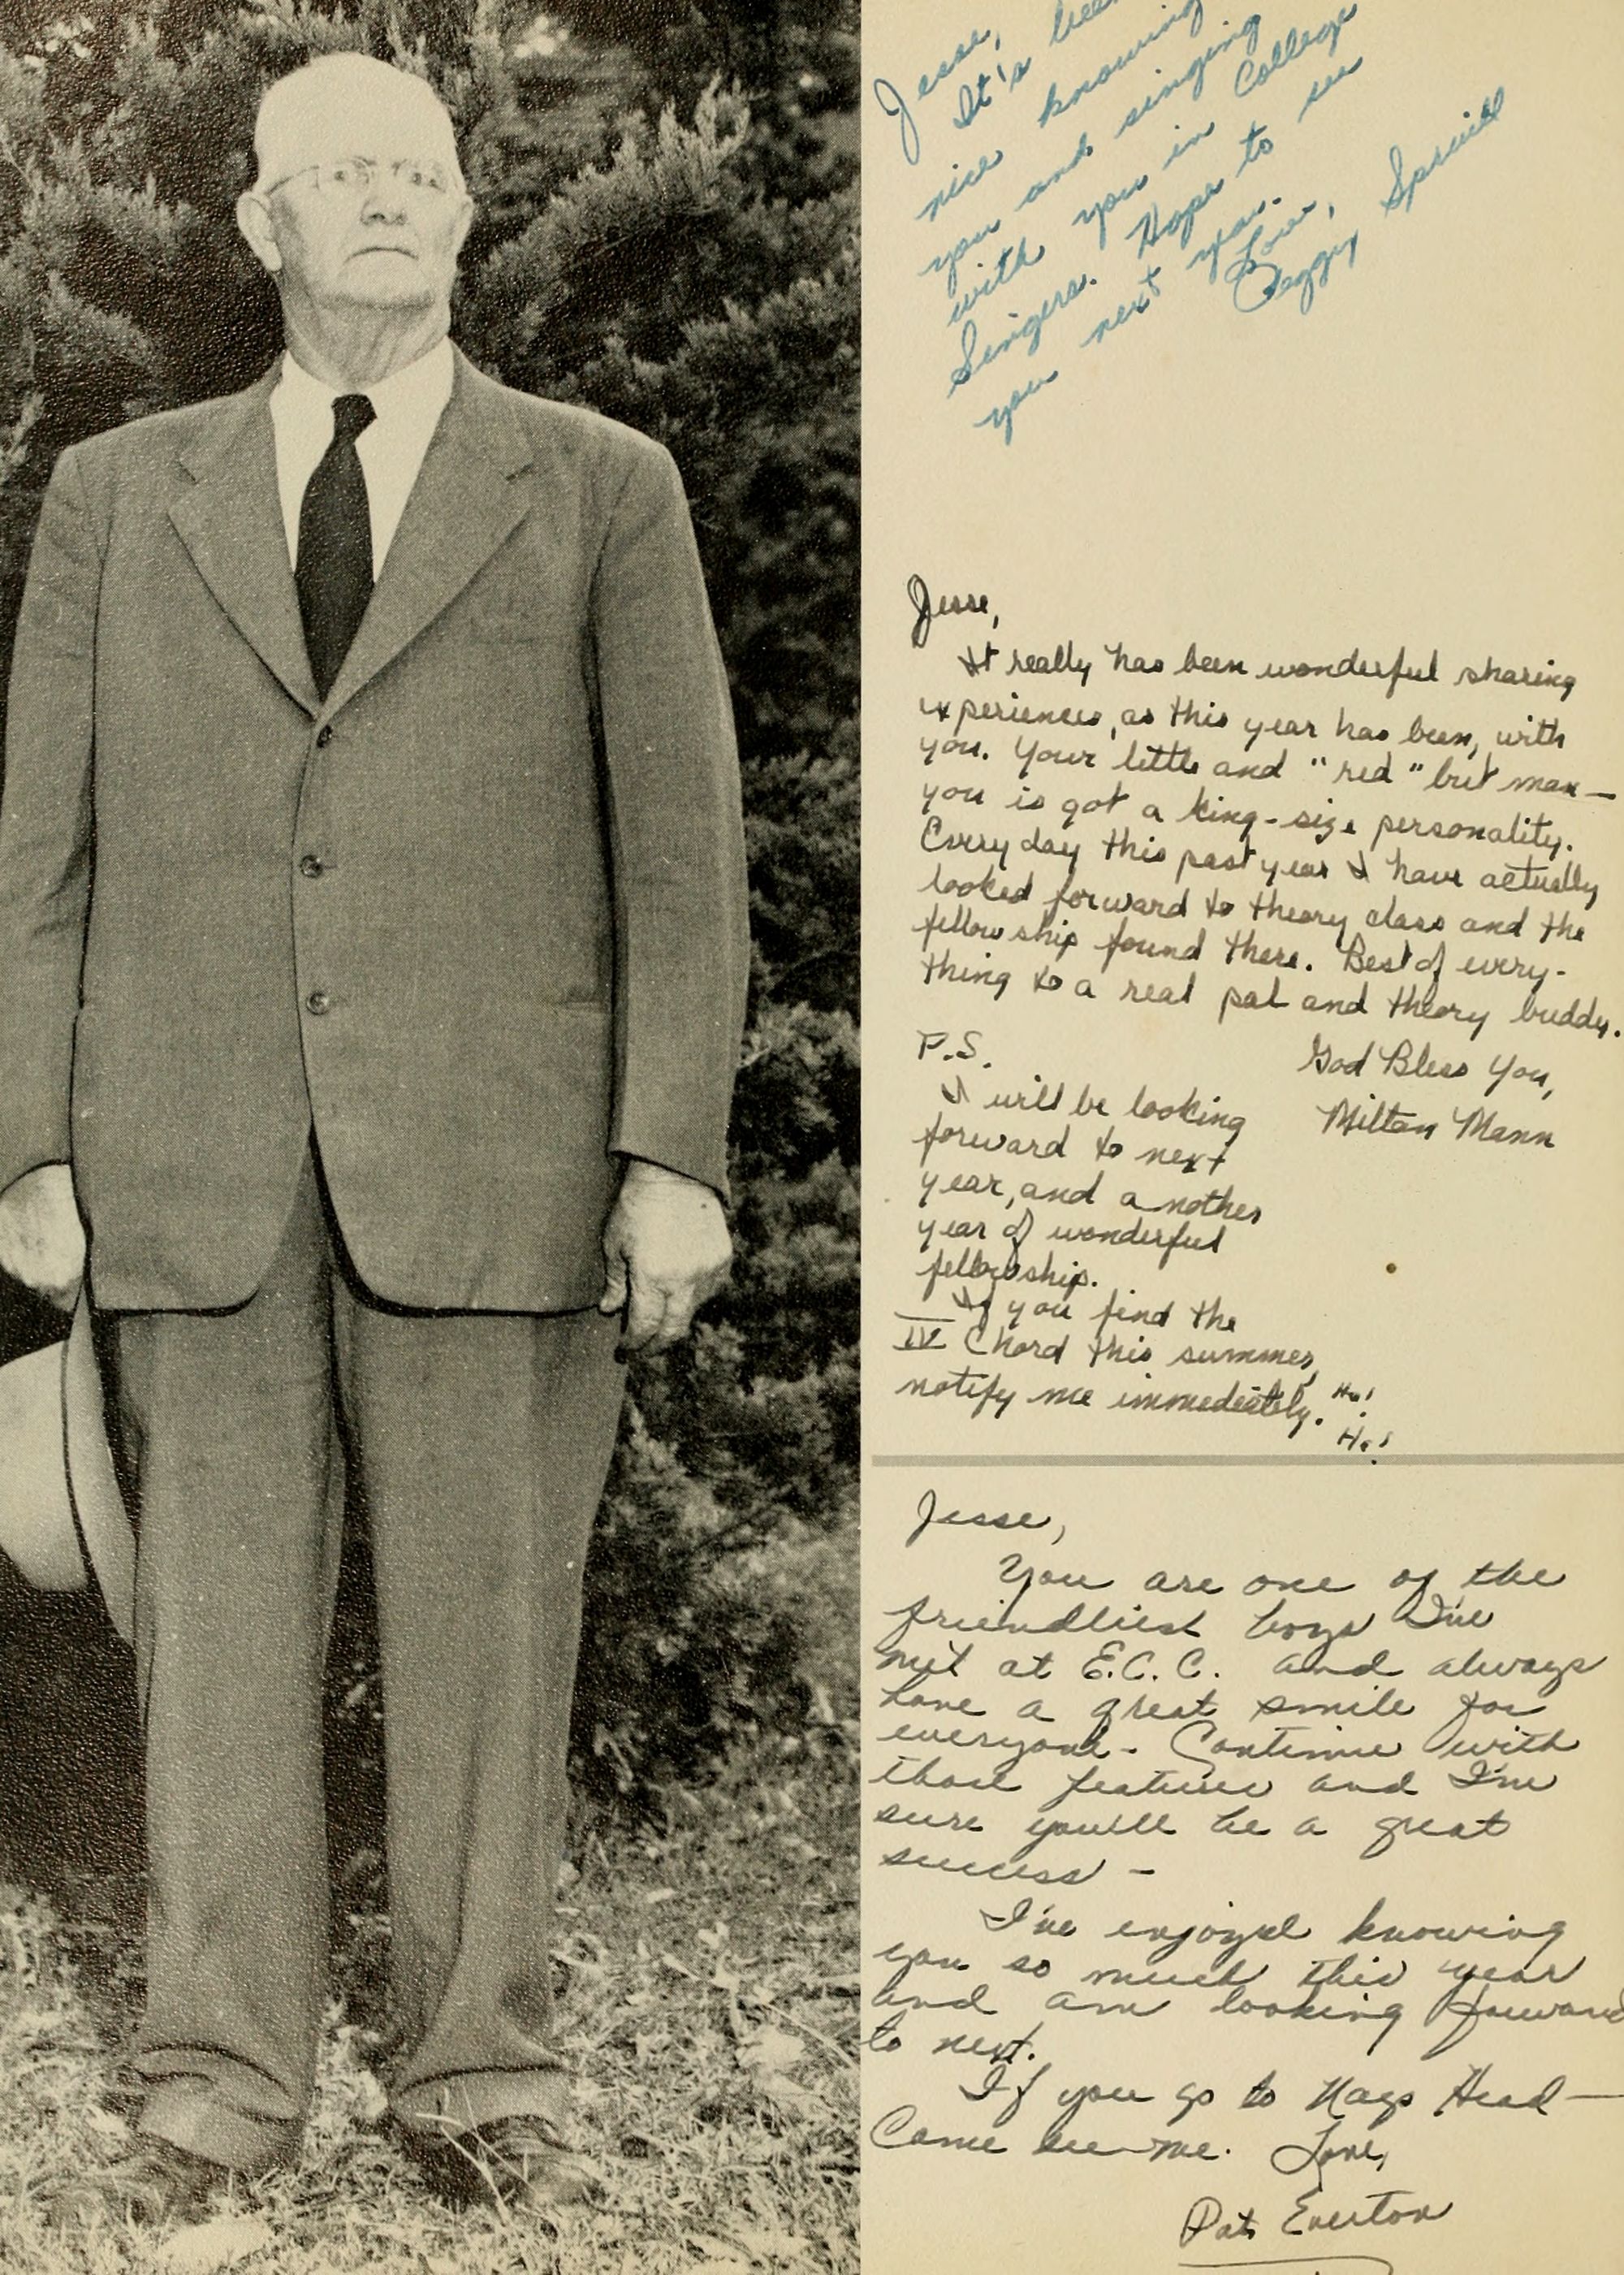 Jesse,
It's been
nice knowing
you and singing
with you in College
Singers. Hope to see
you next year.
Love,
Peggy Spruill
Jesse,
It really has been wonderful sharing
experiences, as this year has been, with
you. Your little and "red" but man—
you is got a king-size personality.
Every day this past year I have actually
looked forward to theory class and the
fellowship found there. Best of every-
thing to a real pal and theory buddy.
God Bless You,
Milton Mann
P.S.
I will be looking
forward to next
year, and another
year of wonderful
fellowship.
If you find the
IV Chord this summer,
notify me immediately. Ho!
Ho!
Jesse,
You are one of the
friendliest boys I've
met at E.C.C. and always
have a great smile for
everyone. Continue with
those features and I'm
sure you'll be a great
success —
I've enjoyed knowing
you so much this year
and am looking forward
to next.
If you go to Nags Head —
Come see me. Love,
Pat Everton